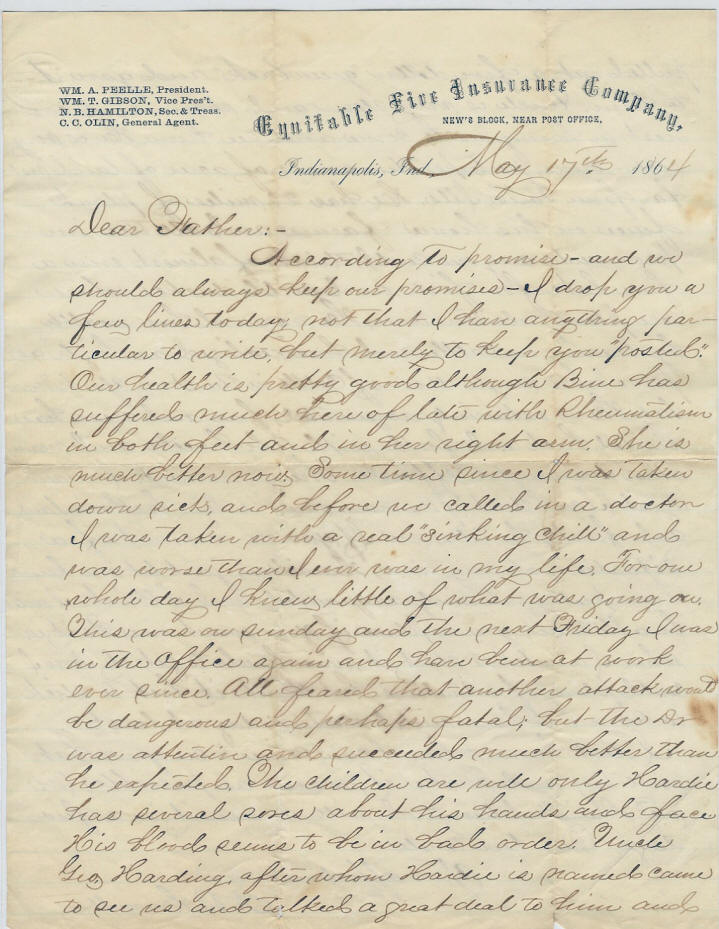 WM. A. PEELLE, President.
WM. T. GIBSON, Vice Pres't.
N. B. HAMILTON, Sec. & Treas.
C. C. OLIN, General Agent.
Equitable Fire Insurance Company,
NEW'S BLOCK, NEAR POST OFFICE,
Indianapolis, Ind., May 17th 1864
Dear Father:-
According to promise - and we
should always keep our promises - I drop you a
few lines today, not that I have anything par-
ticular to write, but merely to keep you "posted".
Our health is pretty good although Bine has
suffered much here of late with Rheumatism
in both feet and in her right arm. She is
much better now. Some time since I was taken
down sick, and before we called in a doctor
I was taken with a real "sinking chill" and
was worse than I ever was in my life. For one
whole day I knew little of what was going on.
This was on sunday and the next Friday I was
in the office again and have been at work
ever since. All feared that another attack would
be dangerous and perhaps fatal; but the Dr
was attentin and succeeded much better than
he expected. The children are well only Hardie
has several sores about his hands and face
His blood seems to be in bad order. Uncle
Geo Harding, after whom Hardie is named came
to see us and talked a great deal to him and